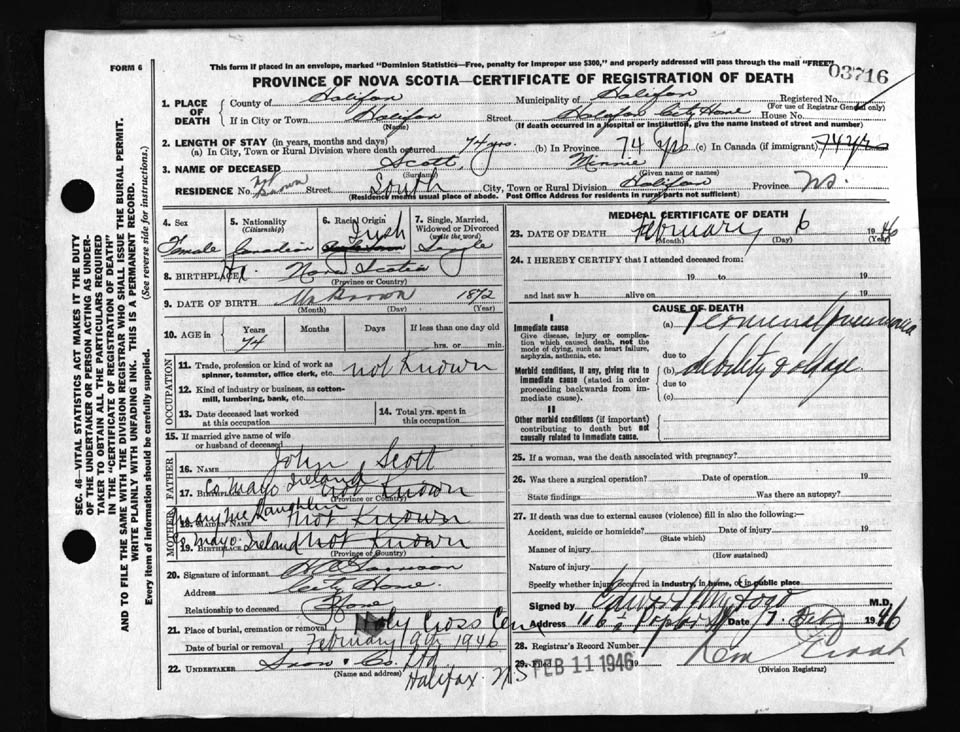 FORM 6
This form if placed in an envelope, marked "Dominion Statistics—Free, penalty for improper use $300," and properly addressed will pass through the mail "FREE"
03716
PROVINCE OF NOVA SCOTIA—CERTIFICATE OF REGISTRATION OF DEATH
1. PLACE OF DEATH
County of Halifax Municipality of Halifax Registered No.
(For use of Registrar General only)
If in City or Town Halifax Street Halifax City Home House No.
(Name) (If death occurred in a hospital or institution, give the name instead of street and number)
2. LENGTH OF STAY (in years, months and days)
(a) In City, Town or Rural Division where death occurred 74 yrs. (b) In Province 74 yrs (c) In Canada (if immigrant) 74 yrs
3. NAME OF DECEASED Scott, Minnie
(Surname) (Given name or names)
RESIDENCE No. Street South City, Town or Rural Division Halifax Province NS.
(Residence means usual place of abode. Post Office Address for residents in rural parts not sufficient)
4. Sex
Female
5. Nationality
(Citizenship)
Canadian
6. Racial Origin
Irish
7. Single, Married, Widowed or Divorced
(write the word)
Single
8. BIRTHPLACE Nova Scotia
(Province or Country)
9. DATE OF BIRTH Unknown 1872
(Month) (Day) (Year)
10. AGE in
Years Months Days If less than one day old
74 hrs. or min.
OCCUPATION
11. Trade, profession or kind of work as spinner, teamster, office clerk, etc. not Known
12. Kind of industry or business, as cotton-mill, lumbering, bank, etc.
13. Date deceased last worked at this occupation
14. Total yrs. spent in this occupation
15. If married give name of wife or husband of deceased
FATHER
16. NAME John Scott
Co Mayo Ireland
17. BIRTHPLACE not Known
(Province or Country)
MOTHER
Mary McLaughlin
18. MAIDEN NAME not Known
19. BIRTHPLACE Co Mayo. Ireland not Known
(Province or Country)
20. Signature of informant
Address City Home.
Relationship to deceased None
21. Place of burial, cremation or removal Holy Cross Cem
Date of burial or removal February 9th 1946
22. UNDERTAKER Snow & Co. Ltd
(Name and address) Halifax NS
MEDICAL CERTIFICATE OF DEATH
23. DATE OF DEATH February 6 1946
(Month) (Day) (Year)
24. I HEREBY CERTIFY that I attended deceased from:
19 to 19
and last saw h alive on 19
CAUSE OF DEATH
I
Immediate cause
Give disease, injury or complication which caused death, not the mode of dying, such as heart failure, asphyxia, asthenia, etc.
(a) Terminal pneumonia
due to
Morbid conditions, if any, giving rise to immediate cause (stated in order proceeding backwards from immediate cause).
(b) debility old age.
due to
(c)
II
Other morbid conditions (if important) contributing to death but not causally related to immediate cause.
25. If a woman, was the death associated with pregnancy?
26. Was there a surgical operation? Date of operation 19
State findings Was there an autopsy?
27. If death was due to external causes (violence) fill in also the following:—
Accident, suicide or homicide? Date of injury 19
(State which)
Manner of injury
(How sustained)
Nature of injury
Specify whether injury occurred in industry, in home, or in public place
Signed by M.D.
Address Date 7. Feb 1946
28. Registrar's Record Number
29. Filed FEB 11 1946 19
(Division Registrar)
SEC. 46—VITAL STATISTICS ACT MAKES IT THE DUTY
OF THE UNDERTAKER OR PERSON ACTING AS UNDER-
TAKER TO OBTAIN ALL THE PARTICULARS REQUIRED
IN THE "CERTIFICATE OF REGISTRATION OF DEATH"
AND TO FILE THE SAME WITH THE DIVISION REGISTRAR WHO SHALL ISSUE THE BURIAL PERMIT.
WRITE PLAINLY WITH UNFADING INK. THIS IS A PERMANENT RECORD.
Every item of information should be carefully supplied. (See reverse side for instructions.)